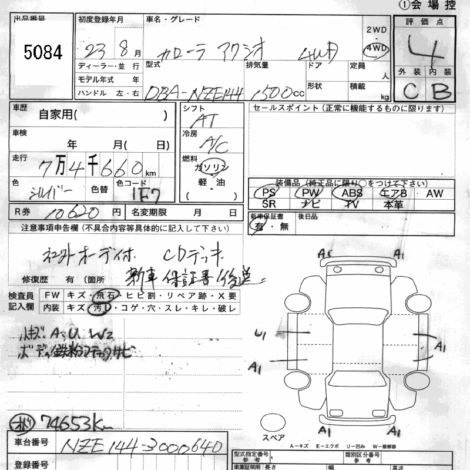 ①会場控
出品番号 初度登録年月 車名・グレード 評価点
5084 23年 8月 カローラ アクシオ 4WD 2WD 4WD 4
ディーラー・並行 型式 排気量 ドア 定員 人
モデル年式 年 形状 積載量 kg 外装 内装
ハンドル 左・右 DBA-NZE144 1500cc C B
車歴 自家用( ) シフト AT セールスポイント(正常に機能するものに限ります)
車検 年 月( ) 冷房 A/C
走行 7万4千660km 燃料 ガソリン
色 シルバー 色替 色コード 1F7 軽・油
装備品(純正品に限り○をつけて下さい)
PS PW ABS エアB AW
SR ナビ TV 本革
R券 10620円 名変期限 年 月 日
新車保証書 後日品
有・無
注意事項申告欄(不具合内容等具体的に記入して下さい)
オーディオ CDデッキ
修復歴 有(箇所 新車保証書
検査員 FW キズ・飛石・ヒビ割・リペア跡・X要
記入欄 内装 キズ・汚レ・コゲ・穴・スレ・キレ・破レ
A・U W2
ボディ鉄粉 サビ
74653K
車台番号 NZE144-3000640
登録番号
A1 A1
U1 A1
A1 A1
A1 A1
スペア
A-キズ E-エクボ U-凹み W-補修跡
長さ 類別区分番号